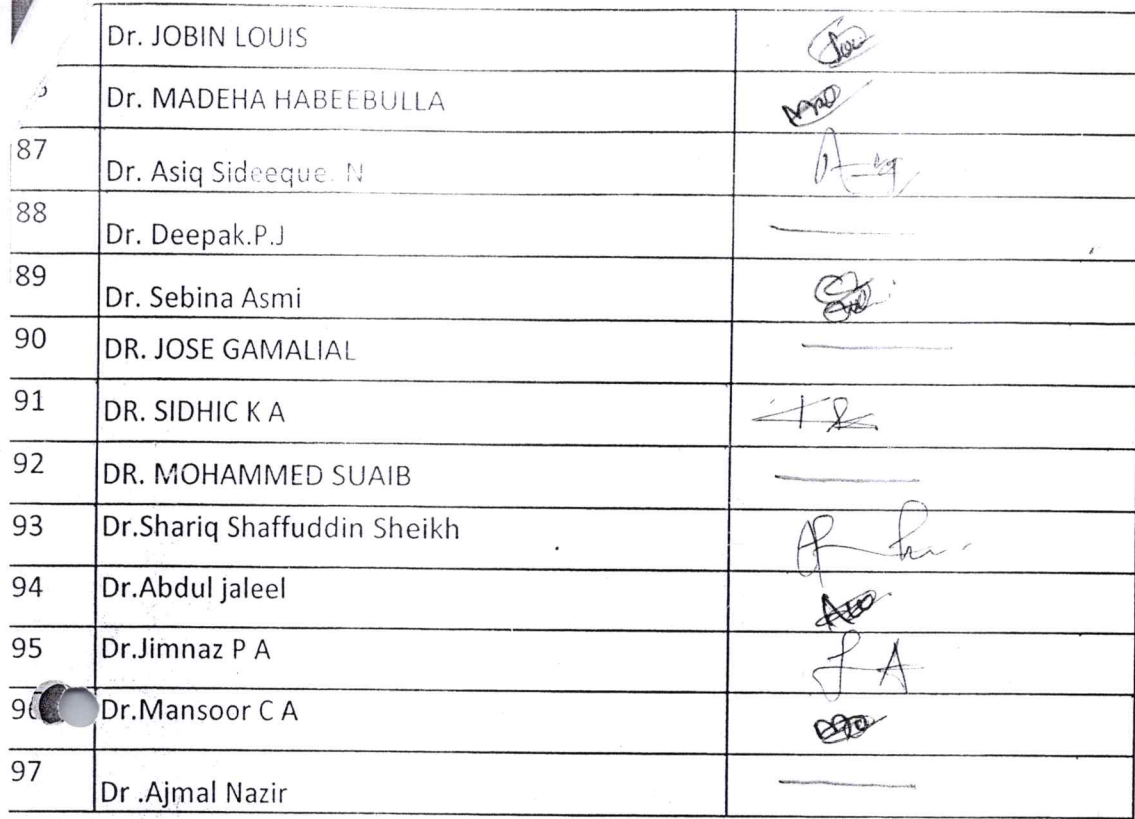 Dr. JOBIN LOUIS
Dr. MADEHA HABEEBULLA
87 Dr. Asiq Sideeque. N
88 Dr. Deepak.P.J
89 Dr. Sebina Asmi
90 DR. JOSE GAMALIAL
91 DR. SIDHIC K A
92 DR. MOHAMMED SUAIB
93 Dr.Shariq Shaffuddin Sheikh
94 Dr.Abdul jaleel
95 Dr.Jimnaz P A
Dr.Mansoor C A
97 Dr .Ajmal Nazir